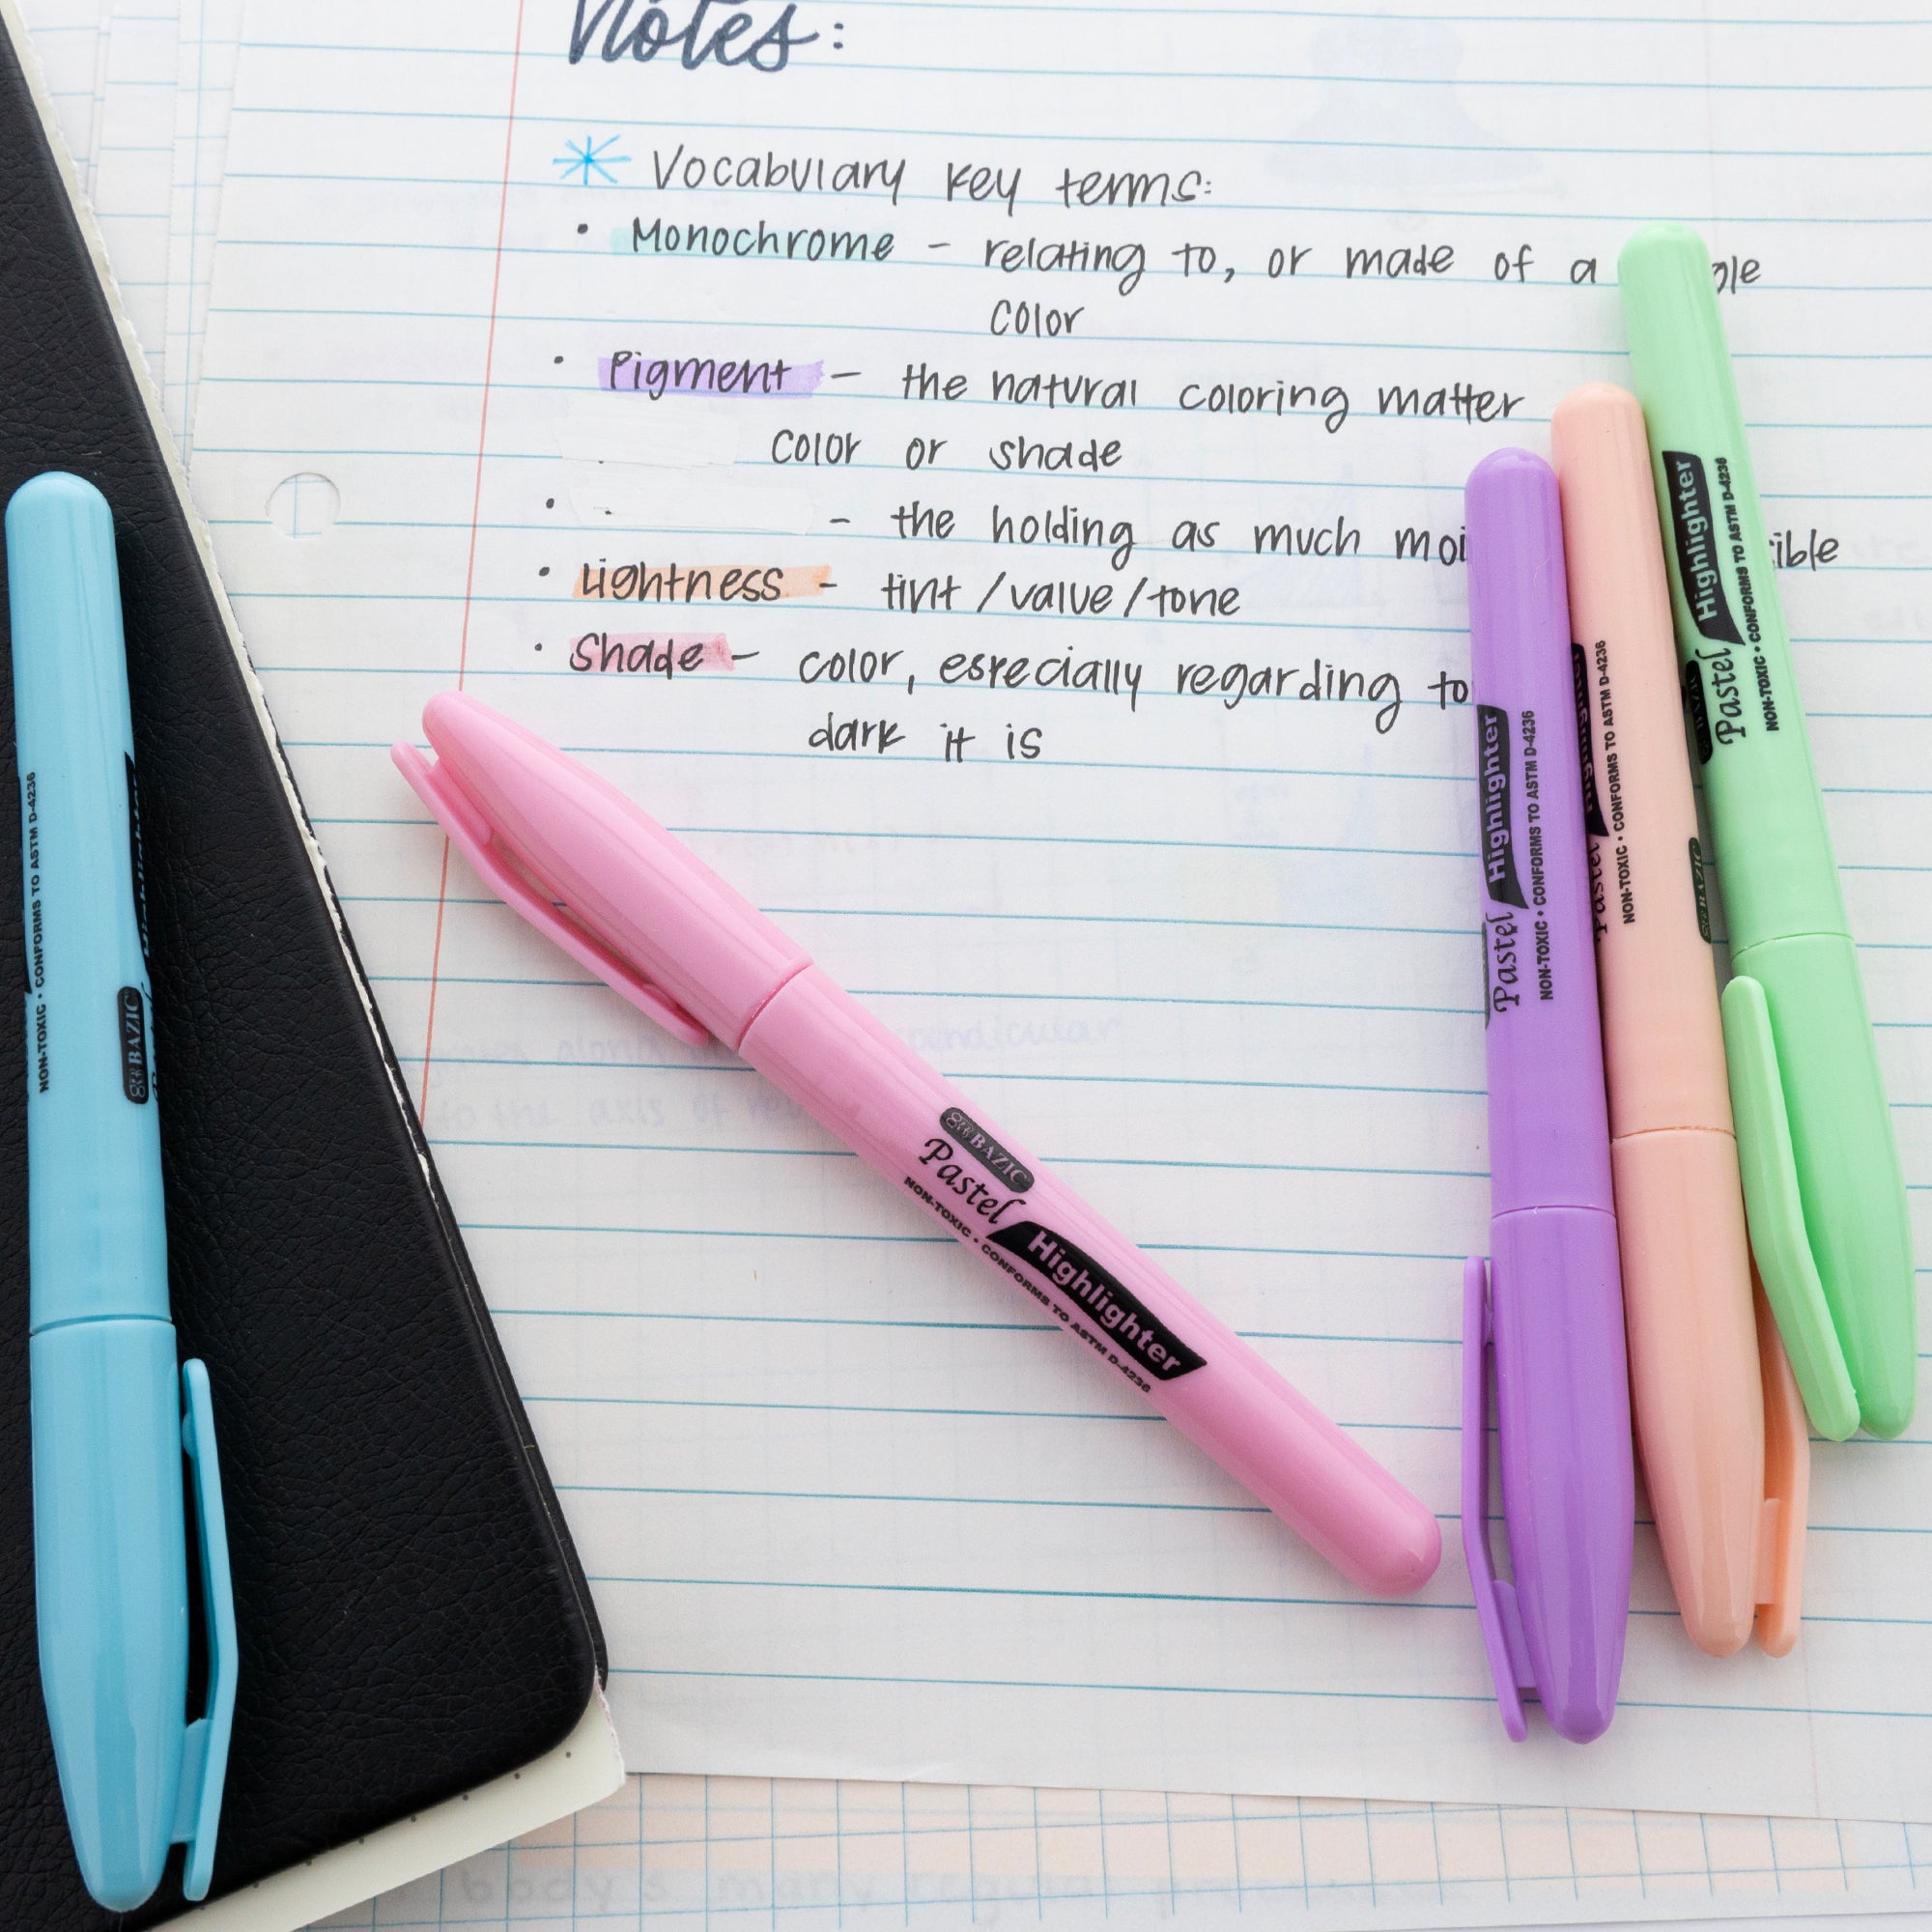 Notes:
Vocabulary key terms:
• Monochrome - relating to, or made of a
color
• Pigment - the natural coloring matter
color or shade
• - the holding as much
• Lightness - tint/value/tone
• Shade - color, especially regarding to
dark it is
NON-TOXIC • CONFORMS TO ASTM D-4236
BAZIC
BAZIC
Pastel Highlighter
NON-TOXIC • CONFORMS TO ASTM D-4236
Pastel Highlighter
NON-TOXIC • CONFORMS TO ASTM D-4236
Pastel
NON-TOXIC • CONFORMS TO ASTM D-4236
BAZIC
Pastel Highlighter
NON-TOXIC • CONFORMS TO ASTM D-4236